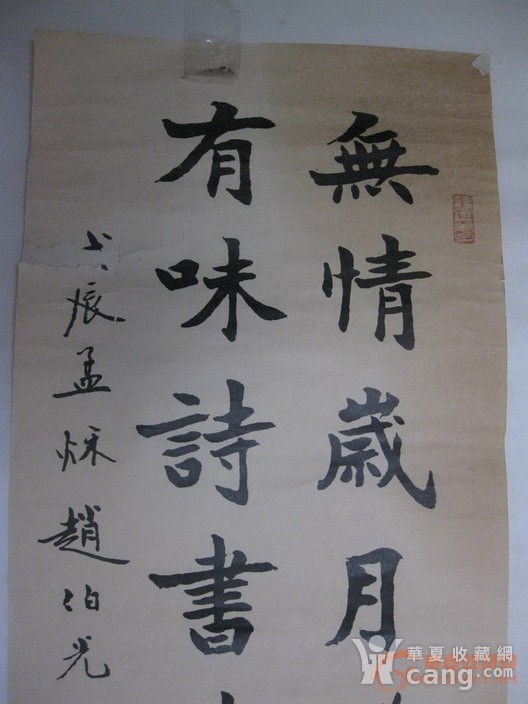 無情歲月
有味詩書
戊辰孟秌趙伯光
華夏收藏網
cang.com